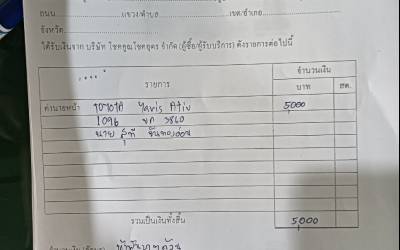 ถนน แขวง/ตำบล เขต/อำเภอ
จังหวัด
ได้รับเงินจาก บริษัท โชคคูณโชคอุดร จำกัด (ผู้ซื้อ/ผู้รับบริการ) ดังรายการต่อไปนี้
รายการ จำนวนเงิน
บาท สต.
ค่านายหน้า TOYOTA Yaris Ativ 5,000
1096 ขก 3860
นาย สุที
รวมเป็นเงินทั้งสิ้น 5,000